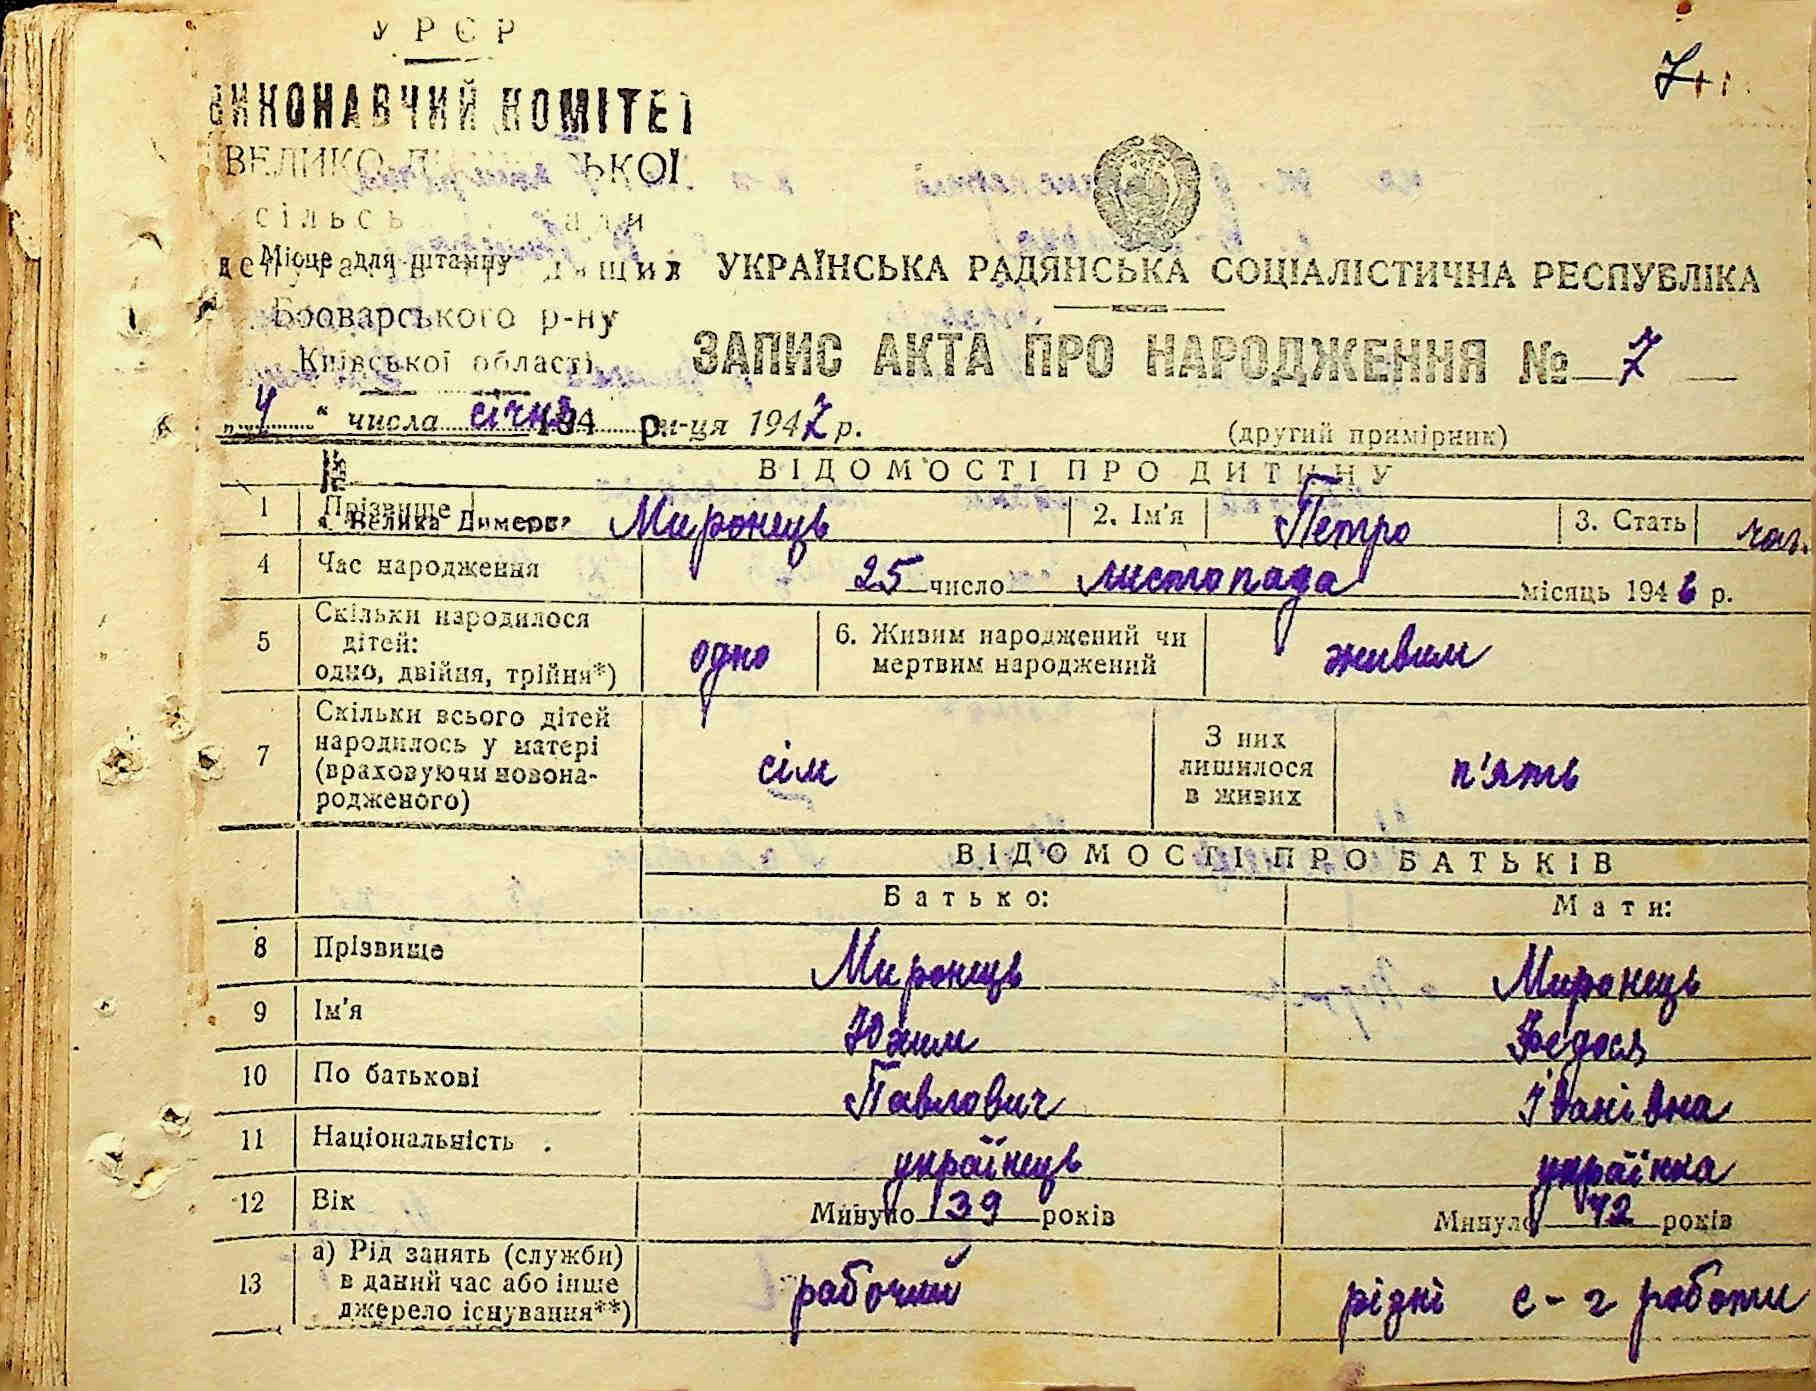 УРСР
7
ВИКОНАВЧИЙ КОМІТЕТ
ВЕЛИКО
Місце для штампу
УКРАЇНСЬКА РАДЯНСЬКА СОЦІАЛІСТИЧНА РЕСПУБЛІКА
Броварського р-ну
Київської області
ЗАПИС АКТА ПРО НАРОДЖЕННЯ № 7
„4" числа січня м-ця 1947 р.
194 р.
(другий примірник)
ВІДОМОСТІ ПРО ДИТИНУ
1 Прізвище Миронець 2. Ім'я Петро 3. Стать чол.
с. Велика Димерка
4 Час народження 25 число листопада місяць 1946 р.
5 Скільки народилося
дітей:
одно, двійня, трійня*) одно 6. Живим народжений чи
мертвим народжений живим
7 Скільки всього дітей
народилось у матері
(враховуючи новона-
родженого) сім З них
лишилося
в живих п'ять
ВІДОМОСТІ ПРО БАТЬКІВ
Батько: Мати:
8 Прізвище Миронець Миронець
9 Ім'я Юхим Федося
10 По батькові Павлович Іванівна
11 Національність українець українка
12 Вік Минуло 39 років Минуло 42 років
13 а) Рід занять (служби)
в даний час або інше
джерело існування**) рабочий рідні с-г роботи